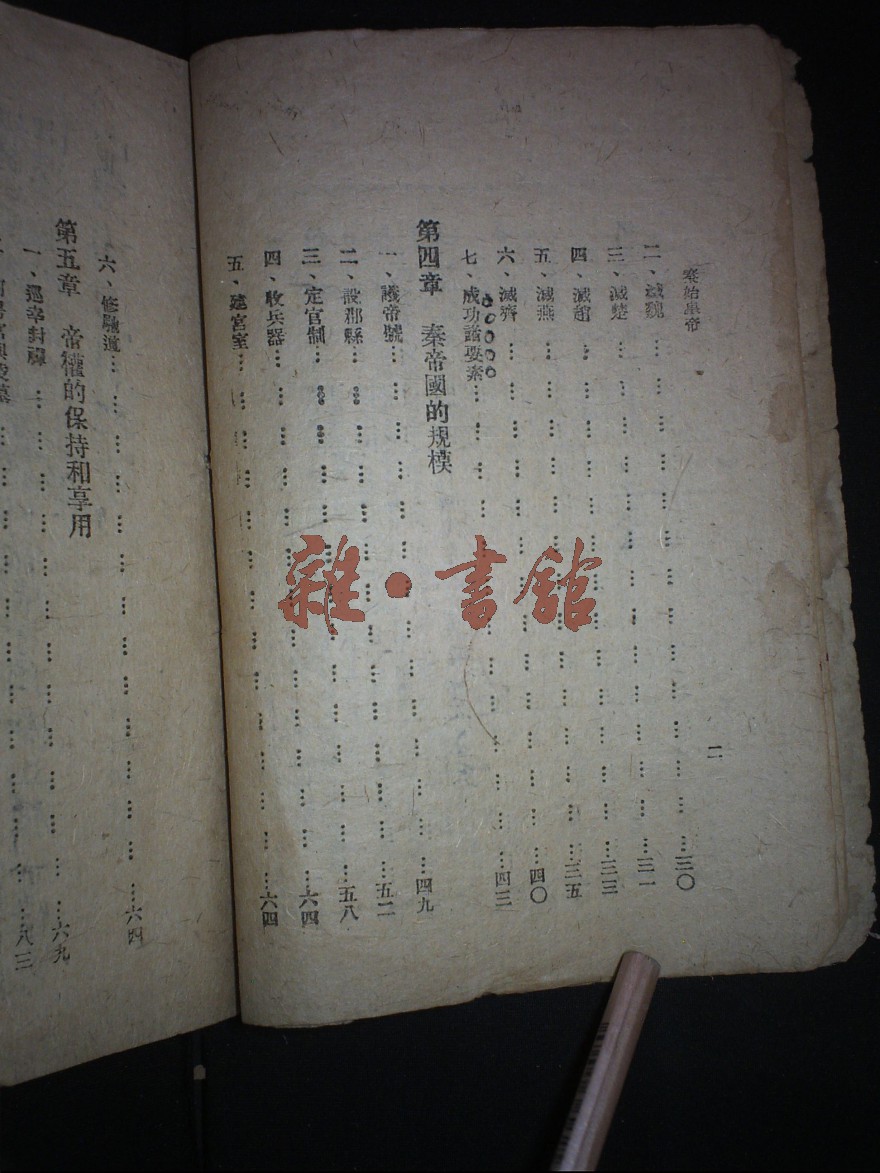 秦始皇帝
二
二、滅魏……三〇
三、滅楚……三一
四、滅趙……三三
五、滅燕……三五
六、滅齊……四〇
七、成功諸要素……四三
第四章 秦帝國的規模
一、議帝號……四九
二、設郡縣……五二
三、定官制……五八
四、收兵器……六四
五、建宮室……六四
六、修馳道……六四
第五章 帝權的保持和享用
一、巡幸封禪……六九
宮與陵墓……八三
雜·書館